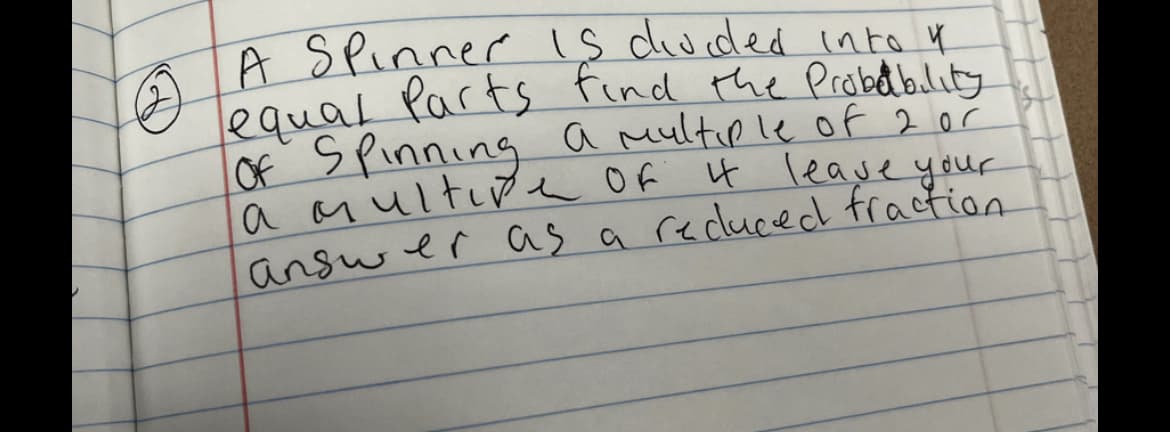 ② A Spinner is divided into 4
equal Parts find the Probability
of Spinning a multiple of 2 or
a multiple of 4 leave your
answer as a reduced fraction